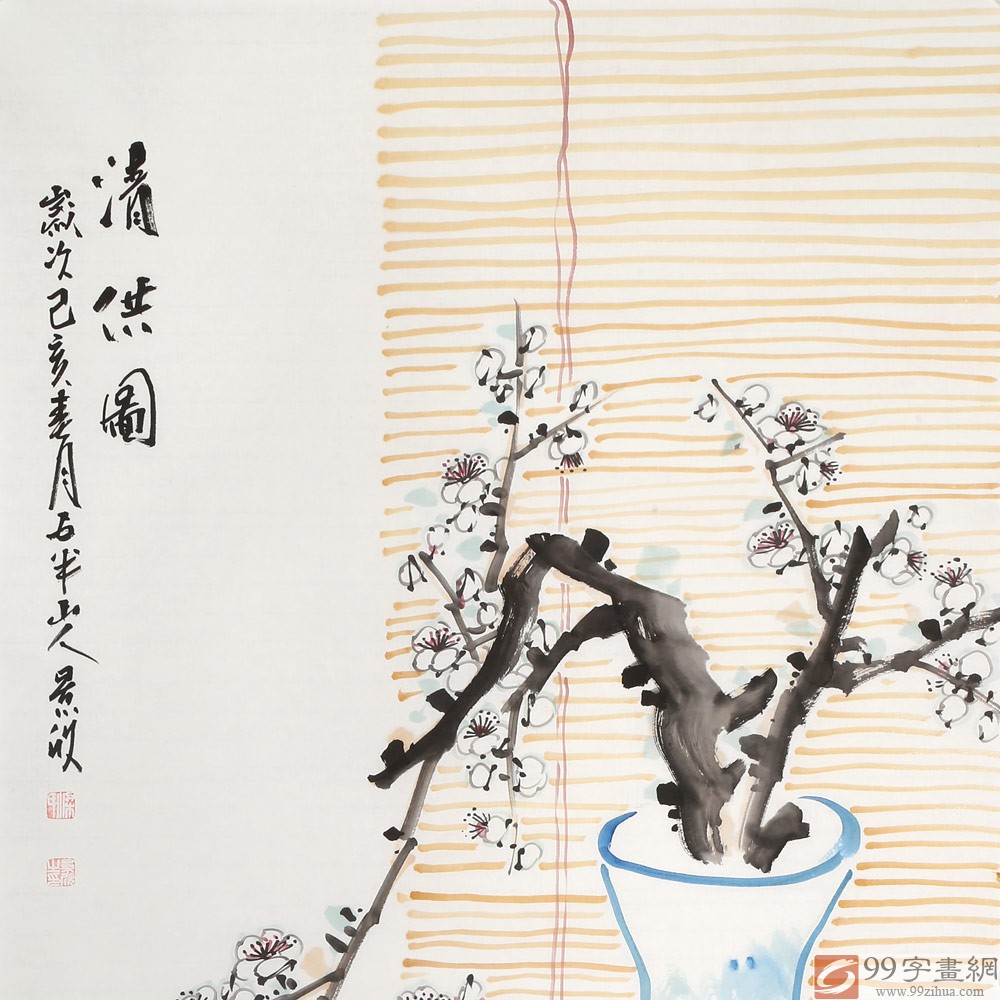 清供图
歲次己亥春月五半山人景順
99字畫網
www.99zihua.com